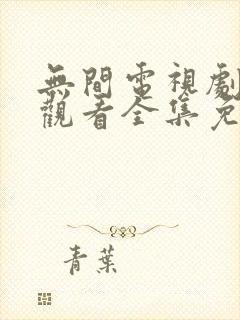 無間電視劇
觀看全集免
青葉